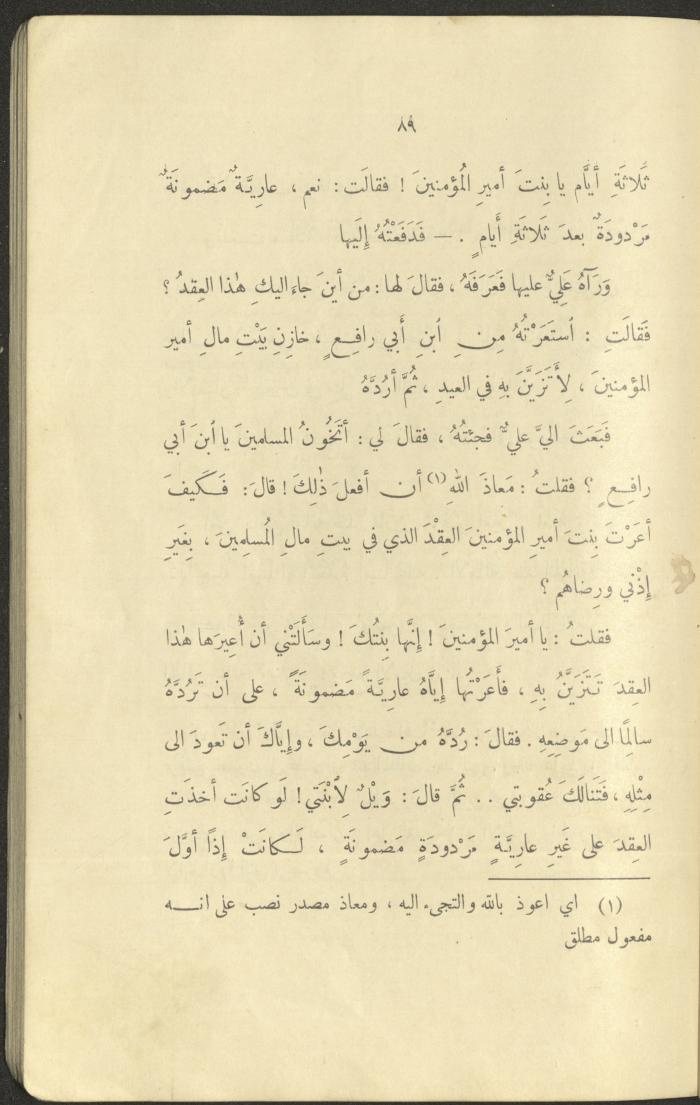 ٨٩
ثَلاثَةِ أيَّام يا بِنتَ أميرِ المُؤمنينَ ! فقالَت : نعم ، عارِيَّةٌ مَضمونَةٌ
مَرْدودَةٌ بعدَ ثَلاثَةِ أَيامٍ . — فَدَفَعْتُهُ إِلَيها
وَرَآهُ عَلِيٌّ عليها فَعَرَفَهُ ، فقالَ لها : من أينَ جاءَ اليكِ هٰذا العِقدُ ؟
فَقالَتِ : ٱستَعَرْتُهُ مِنِ ٱبنِ أَبي رافِعٍ ، خازِنِ بَيْتِ مالِ أمير
المؤمنينَ ، لِأَتَزَيَّنَ بهِ في العيدِ ، ثُمَّ أرُدَّهُ
فَبَعَثَ اليَّ عليٌّ فجئتُهُ ، فقالَ لي : أتَخُونُ المسلمينَ يا ٱبنَ أبي
رافِعٍ ؟ فقلتُ : مَعاذَ اللهِ (١) أن أفعلَ ذٰلِكَ ! قالَ : فَكَيفَ
أعَرْتَ بِنتَ أميرِ المؤمنينَ العِقْدَ الذي في بيتِ مالِ المُسلِمينَ ، بِغَيرِ
إذْني ورِضاهُم ؟
فقلتُ : يا أميرَ المؤمنينَ ! إنَّها بِنتُكَ ! وسَأَلَتْني أن أُعِيرَها هٰذا
العِقدَ تَتَزَيَّنُ بِهِ ، فأَعَرْتُها إيَّاهُ عارِيَّةً مَضمونَةً ، على أن تَرُدَّهُ
سالِمًا الى مَوضِعِهِ . فقالَ : رُدَّهُ من يَوْمِكَ ، وإيَّاكَ أن تَعودَ الى
مِثْلِهِ ، فَتَنالَكَ عُقوبتي .. ثُمَّ قالَ : وَيْلٌ لِٱبْنَتي ! لَو كانَت أخذَتِ
العِقدَ على غَيرِ عارِيَّةٍ مَرْدودَةٍ مَضمونَةٍ ، لَكانَتْ إذًا أوَّلَ
(١) اي اعوذ بالله والتجىء اليه ، ومعاذ مصدر نصب على انه
مفعول مطلق